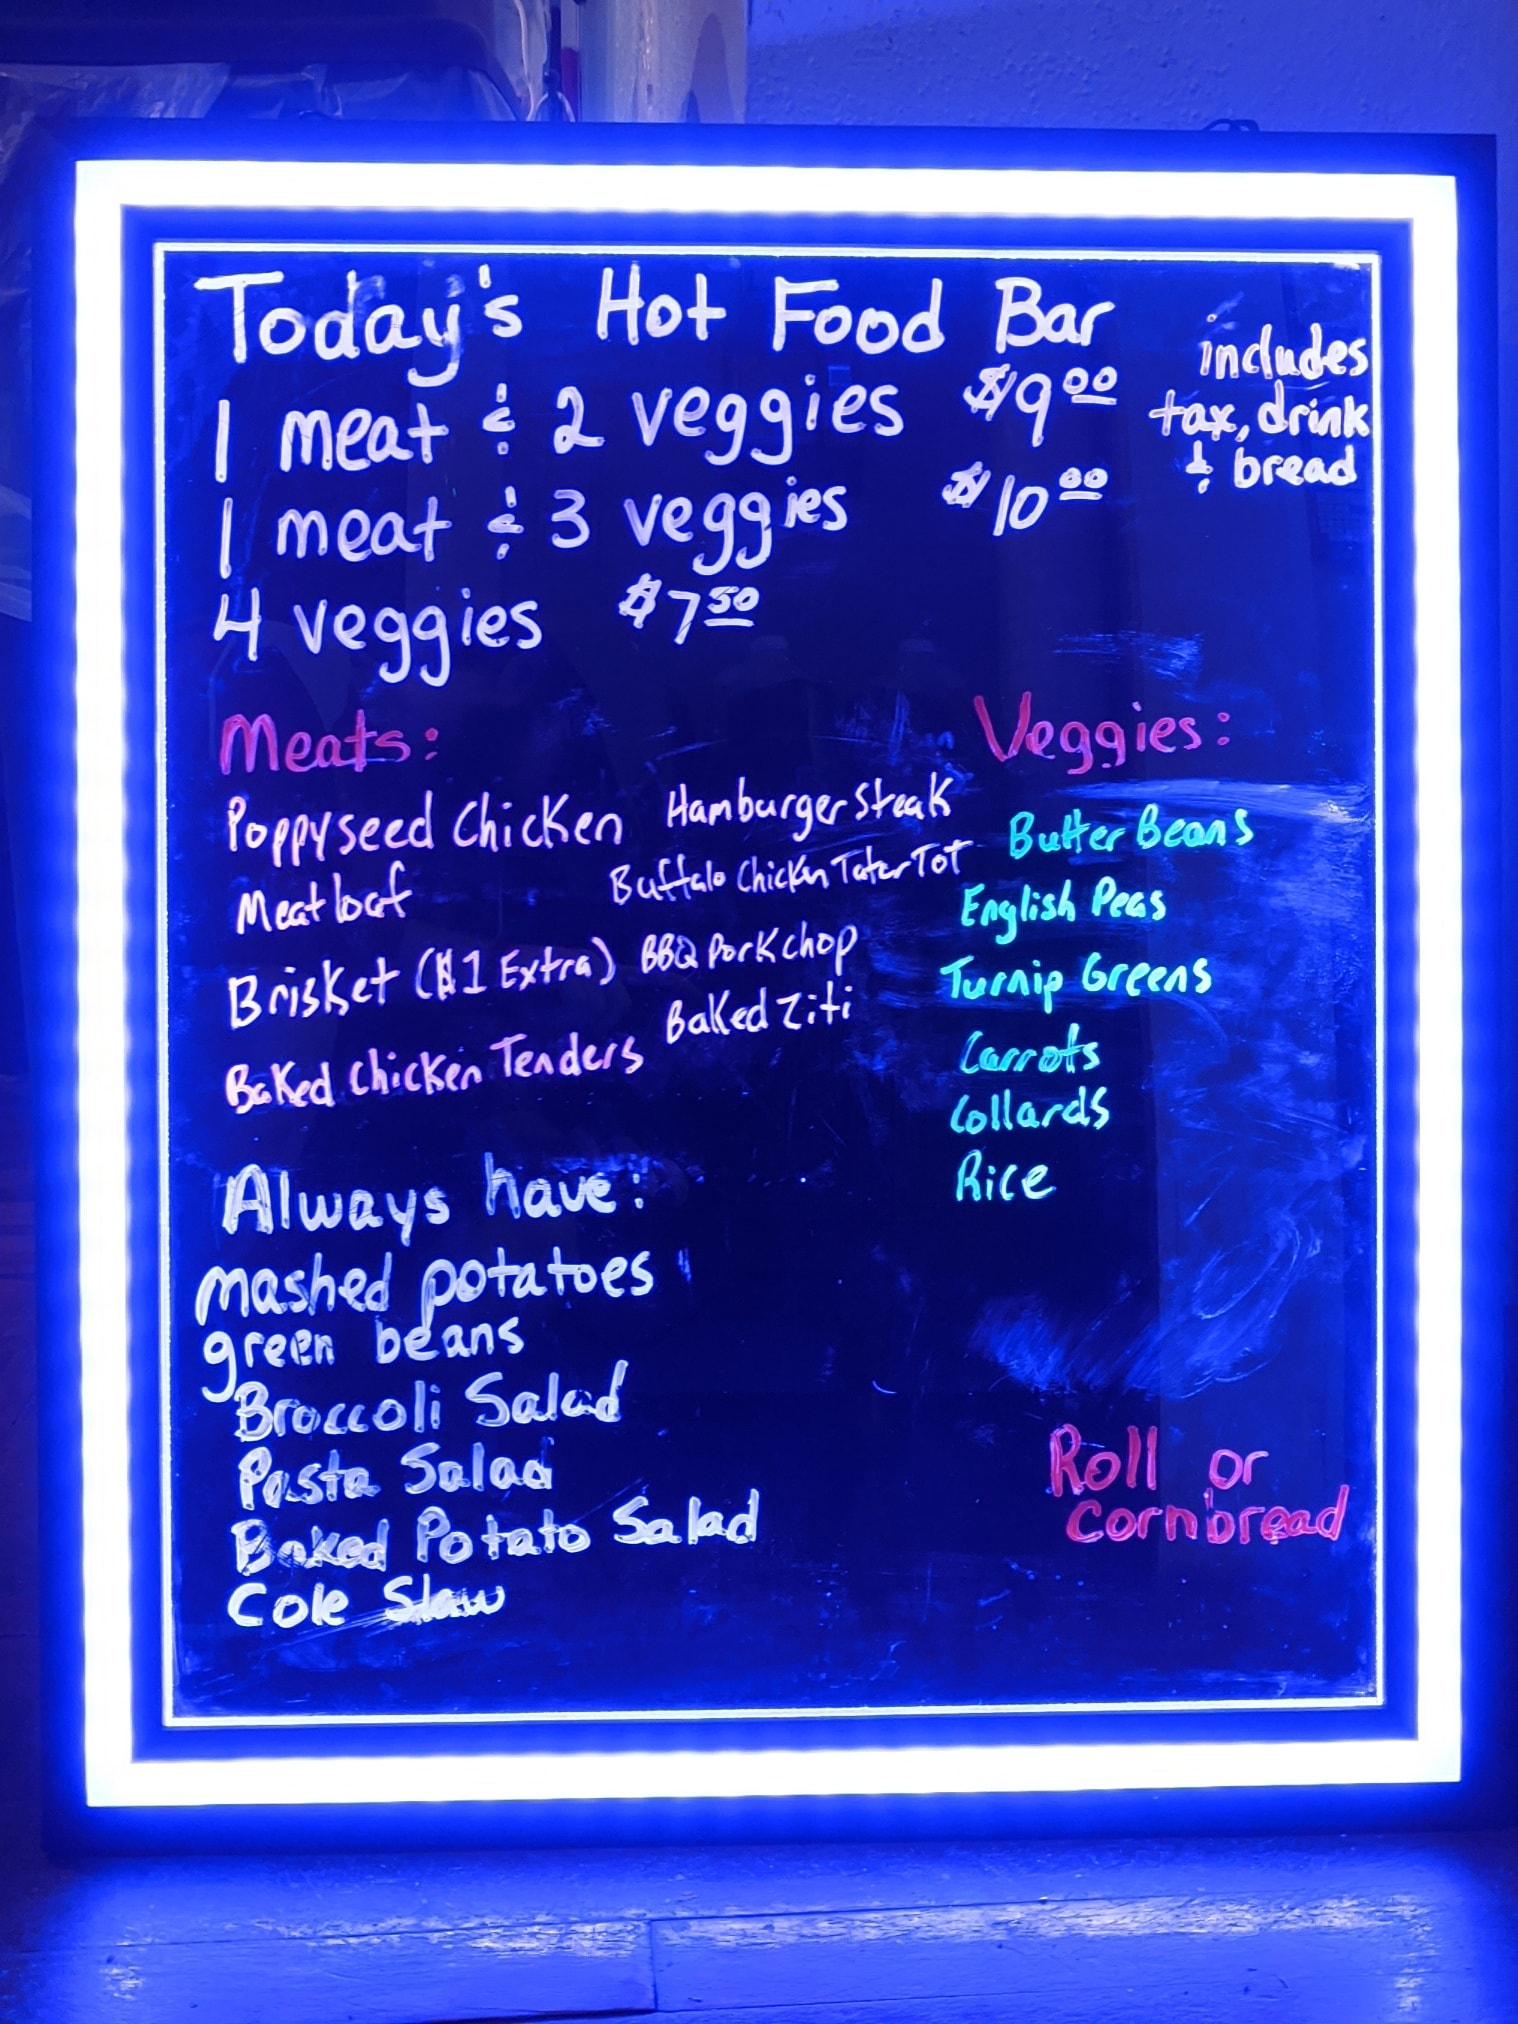 Today's Hot Food Bar
1 meat & 2 veggies $9.00
1 meat & 3 veggies $10.00
4 veggies $7.50
includes
tax, drink
& bread
Meats:
Poppyseed Chicken
Meatloaf
Brisket ($1 Extra)
Baked Chicken Tenders
Hamburger Steak
Buffalo Chicken Tater Tot
BBQ Pork chop
Baked Ziti
Veggies:
Butter Beans
English Peas
Turnip Greens
Carrots
Collards
Rice
Always have:
mashed potatoes
green beans
Broccoli Salad
Pasta Salad
Baked Potato Salad
Cole Slaw
Roll or
Cornbread